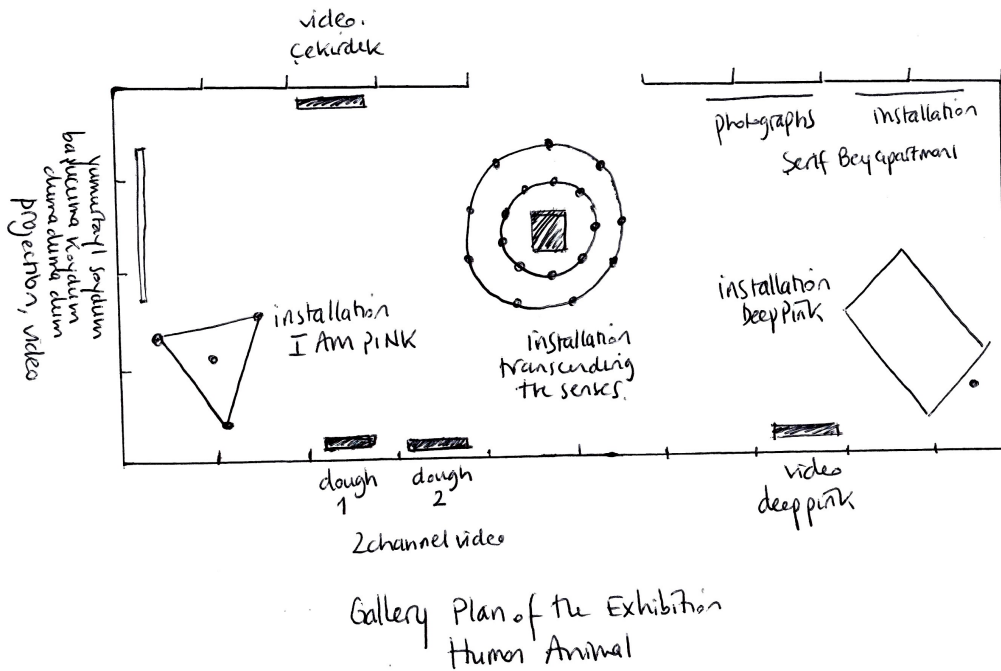 video.
çekirdek
photographs
installation
Şerif Bey apartment
yumurtayı soydum
başucuma koydum
duma duma dum
projection, video
installation
I AM PINK
installation
transcending
the senses.
installation
Deep Pink
dough
1
dough
2
2 channel video
video
deep pink
Gallery Plan of the Exhibition
Human Animal